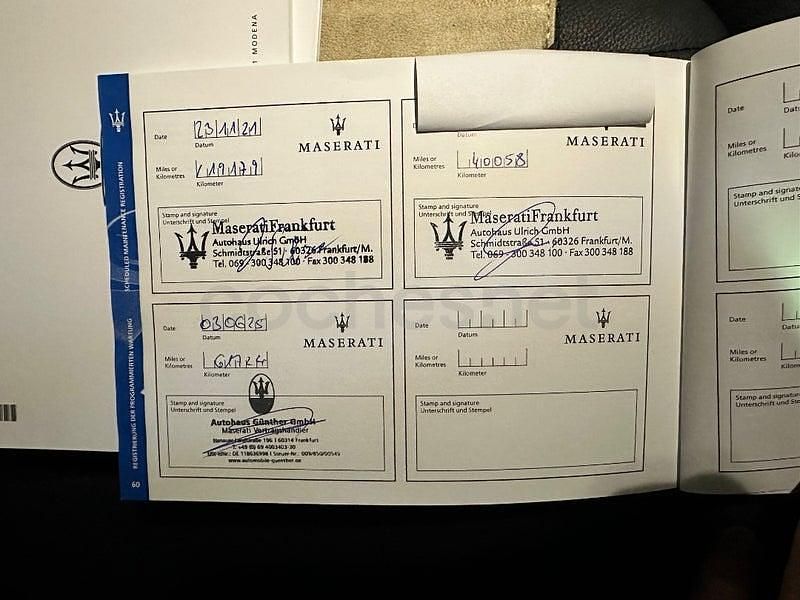 1 MODENA
SCHEDULED MAINTENANCE REGISTRATION
REGISTRIERUNG DER PROGRAMMIERTEN WARTUNG
60
Date 23/11/21
Datum
MASERATI
Miles or
Kilometres
19179
Kilometer
Stamp and signature
Unterschrift und Stempel
MaseratiFrankfurt
Autohaus Ulrich GmbH
Schmidtstraße 51 · 60326 Frankfurt/M.
Tel. 069 · 300 348 100 · Fax 300 348 188
Datum
MASERATI
Miles or
Kilometres
40058
Kilometer
Stamp and signature
Unterschrift und Stempel
MaseratiFrankfurt
Autohaus Ulrich GmbH
Schmidtstraße 51 - 60326 Frankfurt/M.
Tel. 069 · 300 348 100 · Fax 300 348 188
Date 03/06/25
Datum
MASERATI
Miles or
Kilometres
Kilometer
Stamp and signature
Unterschrift und Stempel
Autohaus Günther GmbH
Maserati Vertragshändler
Hanauer Landstraße 196 | 60314 Frankfurt
T: +49 (0) 69 4003403-30
www.automobile-guenther.de
Date
Datum
MASERATI
Miles or
Kilometres
Kilometer
Stamp and signature
Unterschrift und Stempel
Date
Miles or
Kilometres
Stamp and
Unterschrift
Date
Miles or
Kilometres
Stamp and
Unterschrift
coches.net